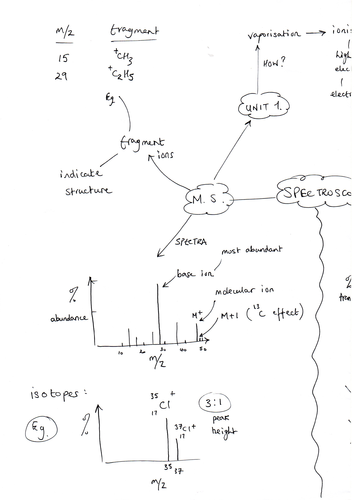 M/Z fragment
15 +CH3
29 +C2H5
Eg
fragment
ions
indicate
structure
vaporisation → ioni
HOW?
high
elec
electr
UNIT 1.
M.S.
SPECTROSCO
SPECTRA
most abundant
base ion
molecular ion
%
abundance
M+
M+1 (13C effect)
10 20 30 40 50
M/Z
%
isotopes:
Eg.
35Cl+
17
3:1
peak
height
37Cl+
17
%
35 37
M/Z